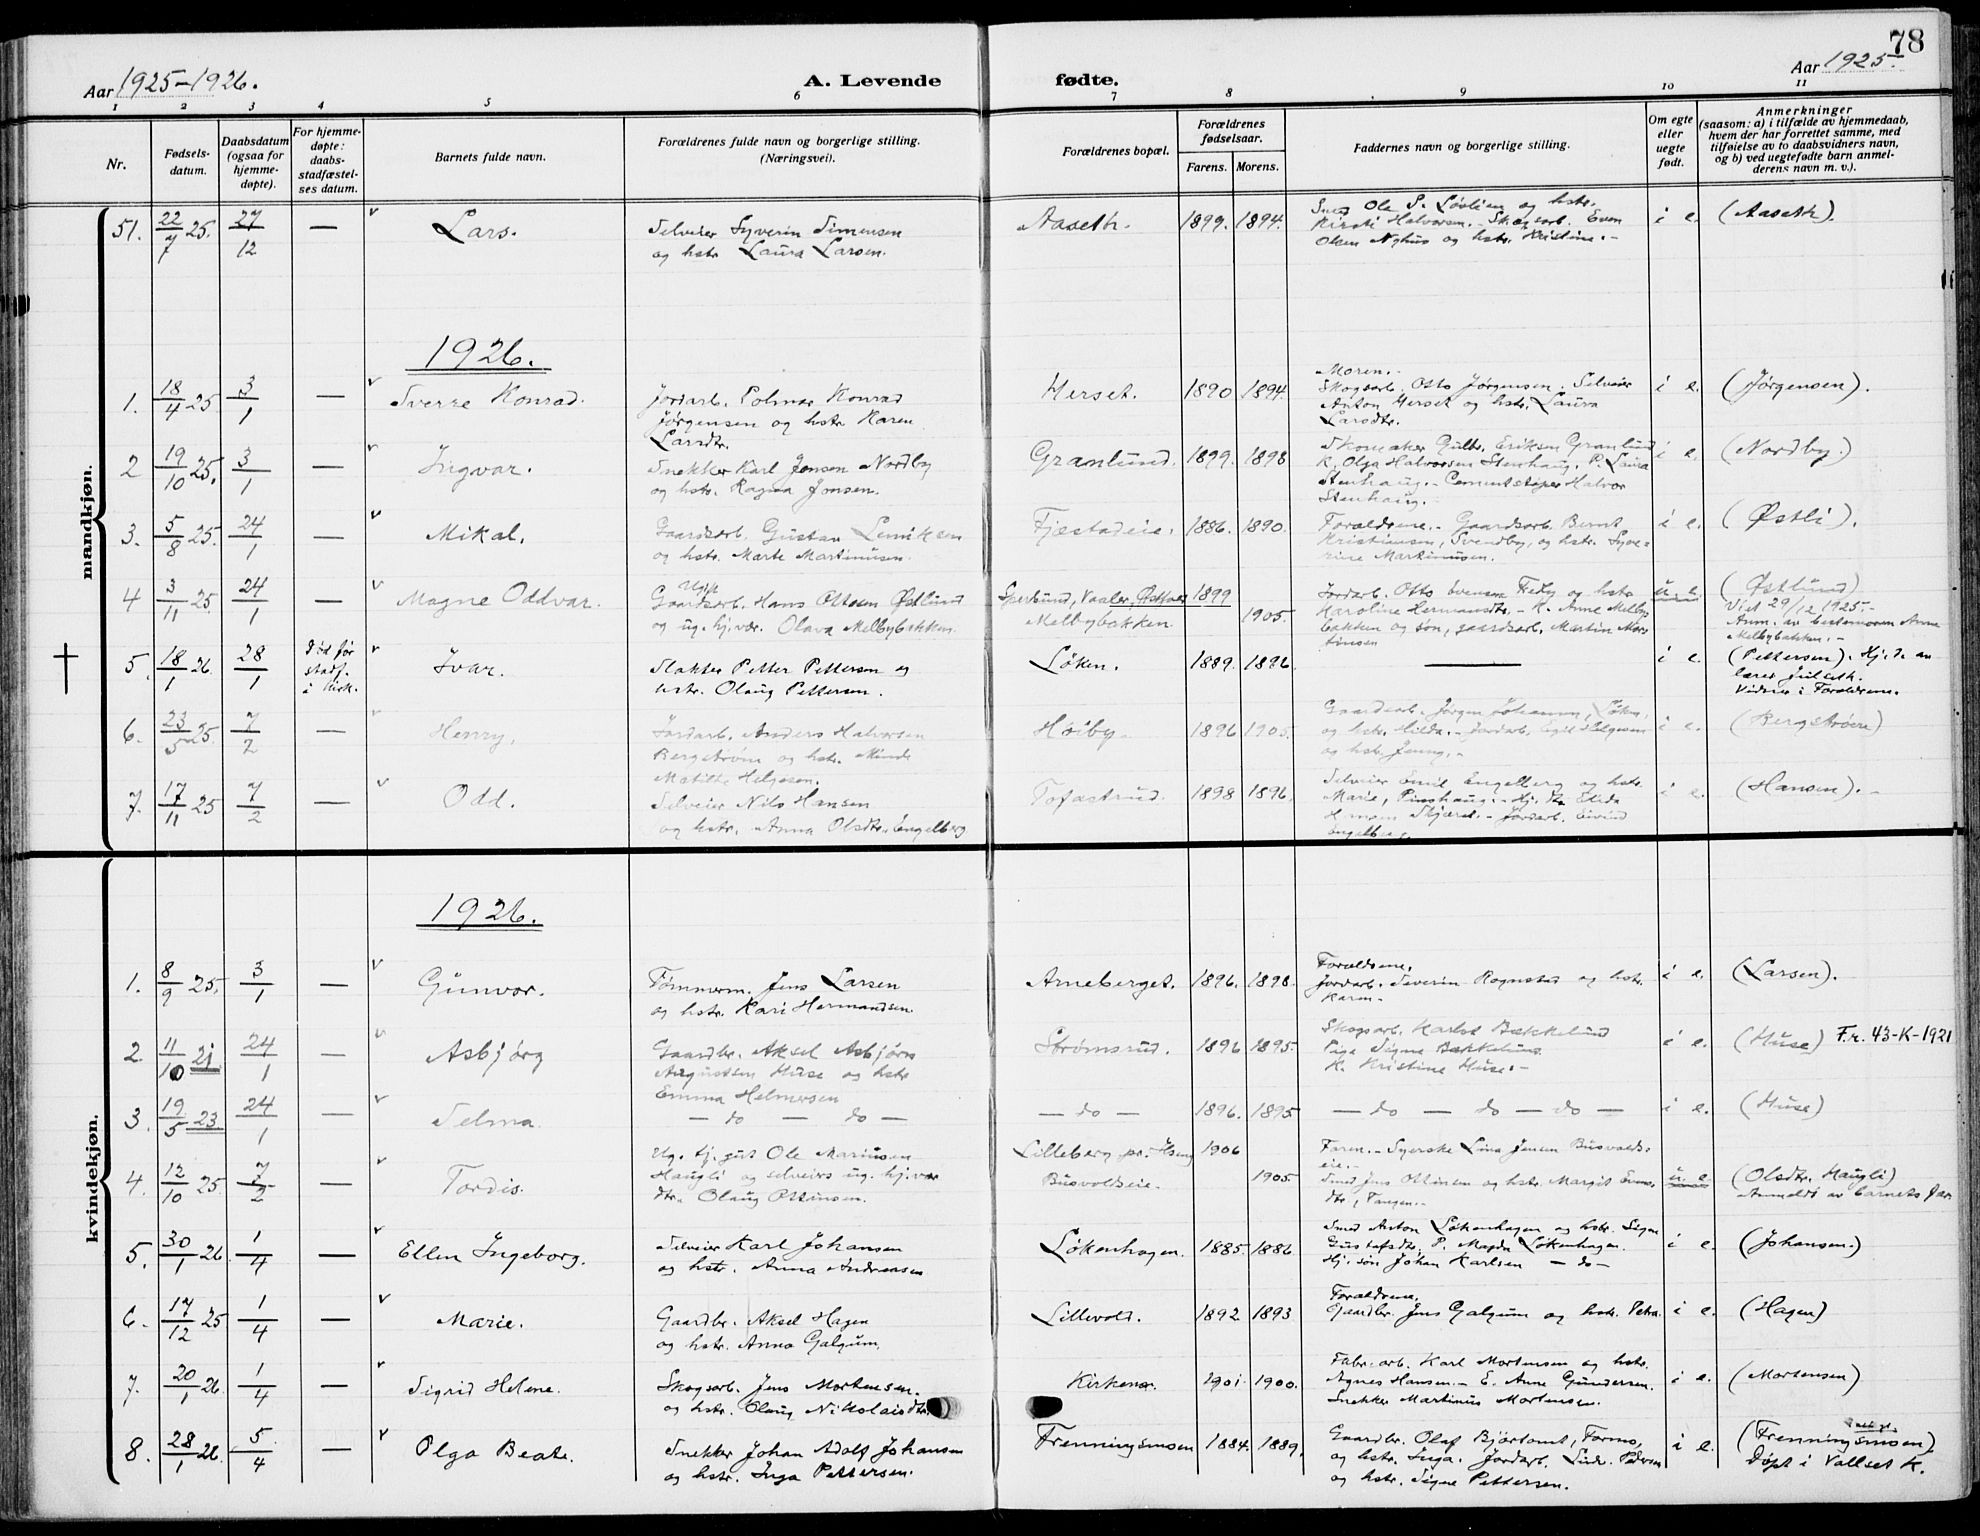 78
Aar 1925-1926.
A. Levende fødte.
Aar 1925.
1 2 3 4 5 6 7 8 9 10 11
Nr.
Fødsels-
datum.
Daabsdatum
(ogsaa for
hjemme-
døpte).
For hjemme-
døpte:
daabs-
stadfæstel-
ses datum.
Barnets fulde navn.
Forældrenes fulde navn og borgerlige stilling.
(Næringsvei).
Forældrenes bopæl.
Forældrenes
fødselsaar.
Farens. Morens.
Faddernes navn og borgerlige stilling.
Om egte
eller
uegte
født.
Anmerkninger
(saasom: a) i tilfælde av hjemmedaab,
hvem der har forrettet samme, med
tilføielse av to daabsvidners navn,
og b) ved uegtefødte barn anmel-
derens navn m. v.).
mandkjøn.
51. 22/7 25. 27/12 — Lars.
Selveier Syverin Simensen
og hstr. Laura Larsen.
Aaseth. 1899. 1894.
Smed Ole P. Løvlien og hstr.
Kirsti Halvorsen. - Skogsarb. Even
Olsen Nyhus og hstr. Kristine. -
i e. (Aaseth).
1926.
1. 18/4 25 3/1 — Sverre Konrad.
Jordarb. Polmar Konrad
Jørgensen og hstr. Karen
Larsdtr.
Herset. 1890 1894.
Moren. -
Skogsarb. Otto Jørgensen. Selveier
Anton Herset og hstr. Laura
Larsdtr.
i e. (Jørgensen).
2 19/10 25. 3/1 — Ingvar.
Snekker Karl Jensen Nordby
og hstr. Ragna Jonsen.
Granlund. 1899. 1898
Skomaker Gulbr. Eriksen Granlund
K. Olga Halvorsen Stenhaug. P. Laura
Stenhaug. - Cementstøper Halvor
Stenhaug. -
i e. (Nordby.)
3. 5/8 25. 24/1 — Mikal.
Gaardsarb. Gustav
og hstr. Marte Martinusen.
Fjæstadeie. 1886. 1890.
Forældrene. - Gaardsarb. Bernt
Kristiansen, Svendby, og hstr. Syve-
rine Martinusen.
i e. (Østli).
4 3/11 25 24/1 — Magne Oddvar.
Ugift
Gaardsarb. Hans Ottosen Østlund
og ug. hj.vær. Olava Melbybakken.
Vaaler, Østfold 1899
Melbybakken. 1905.
Jordarb. Otto Svensen og hstr
Karoline Hermansdtr. - K. Anne Melby-
bakken og søn, gaardsarb. Martin Mar-
tinsen
u. e. (Østlund)
Viet 29/12 1925. -
Anm. av bestemoren Anne
Melbybakken. -
† 5. 18/1 26. 28/1
Død før
stadf.
i kirk.
Ivar.
Slakter Petter Pettersen og
hstr. Olaug Pettersen.
Løken. 1889. 1896 —
i e. (Pettersen). Hj. d. av
lærer Julseth.
Vidner: Forældrene.
6. 23/5 25. 7/2 — Henry.
Jordarb. Anders Halvorsen
Bergstrøm og hstr. Minda
Matilde Helgesen.
Høiby. 1896 1905.
Gaardsarb. Jørgen Johansen, Løken,
og hstr. Hilda. - Jordarb. Egil Helgesen
og hstr. Jenny. -
i e. (Bergstrøm)
7. 17/11 25 7/2 — Odd.
Selveier Nils Hansen
og hstr. Anna Olsdtr. Engelberg
Tofastrud. 1898 1896.
Selveier Emil Engelberg og hstr.
Marie, Pinshaug. -
Hansen Skjæret. - Jordarb. Eivind
Engelberg.
i e. (Hansen). -
kvindekjøn.
1926.
1. 8/9 25. 3/1 — Gunvor.
Tømmerm. Jens Larsen
og hstr. Kari Hermandsen.
Arneberget. 1896. 1898.
Forældrene.
Jordarb. Severin Rognstad og hstr.
Karen -
i e. (Larsen).
2. 11/10 21 24/1 — Asbjørg
Gaardbr. Aksel Asbjørn
Augustsen Huse og hstr
Emma Helmersen
Strømsrud. 1896 1895.
Skogsarb. Karlot Bækkelund
Pige Signe Bækkelund
K. Kristine Huse. -
i e. (Huse) F.r. 43-K-1921
3. 19/5 23 24/1 — Selma
— do — do —
— do — 1896. 1895
— do — do — do —
i e. (Huse)
4. 12/10 25. 7/2 — Tordis.
Ug. tj. gut Ole Mariusen
Haugli og selveiers ug. hj.vær
dtr. Olaug Ottinsen.
Lilleberg pr. Ilseng 1906
Busvoldseie. 1905.
Faren. - Syerske Lina Jensen Busvolds-
eie. -
Smed Jens Ottinsen og hstr. Margit Evens-
dtr, Tangen. -
u. e. (Olsdtr. Haugli)
Anmeldt av barnets far
5. 30/1 26. 1/4 — Ellen Ingeborg.
Selveier Karl Johansen
og hstr. Anna Andreasen
Løkenhagen. 1885. 1886
Smed Anton Løkenhagen og hstr. Signe
Gustafsdtr. P. Magda Løkenhagen.
Hj. søn Johan Karlsen — do —
i e. (Johansen.)
6. 17/12 25 1/4 — Marie.
Gaardbr. Aksel Hagen
og hstr. Anna Galgum.
Lillevold. 1892 1893
Forældrene.
Gaardbr. Jens Galgum og hstr. Petra.
i e. (Hagen)
7. 20/1 26. 1/4 — Sigrid Helene.
Skogsarb. Jens Mortensen.
og hstr. Olaug Nikolaisdtr.
Kirkena. 1901. 1900.
Fabr. arb. Karl Mortensen og hstr.
Agnes Hansen. - E. Anne Gundersen.
Snekker Martinus Mortensen.
i e. (Mortensen)
8. 28/1 26. 5/4 — Olga Beate.
Snekker Johan Adolf Johansen
og hstr. Inga Pettersen.
Frenningsmoen 1884. 1889.
Gaardbr. Olaf Bjørtomt, Formo,
og hstr. Inga. Jordarb. Pedersen
og hstr. Signe Pettersen.
i e. (Frenningsmoen)
Døpt i Vallset K.